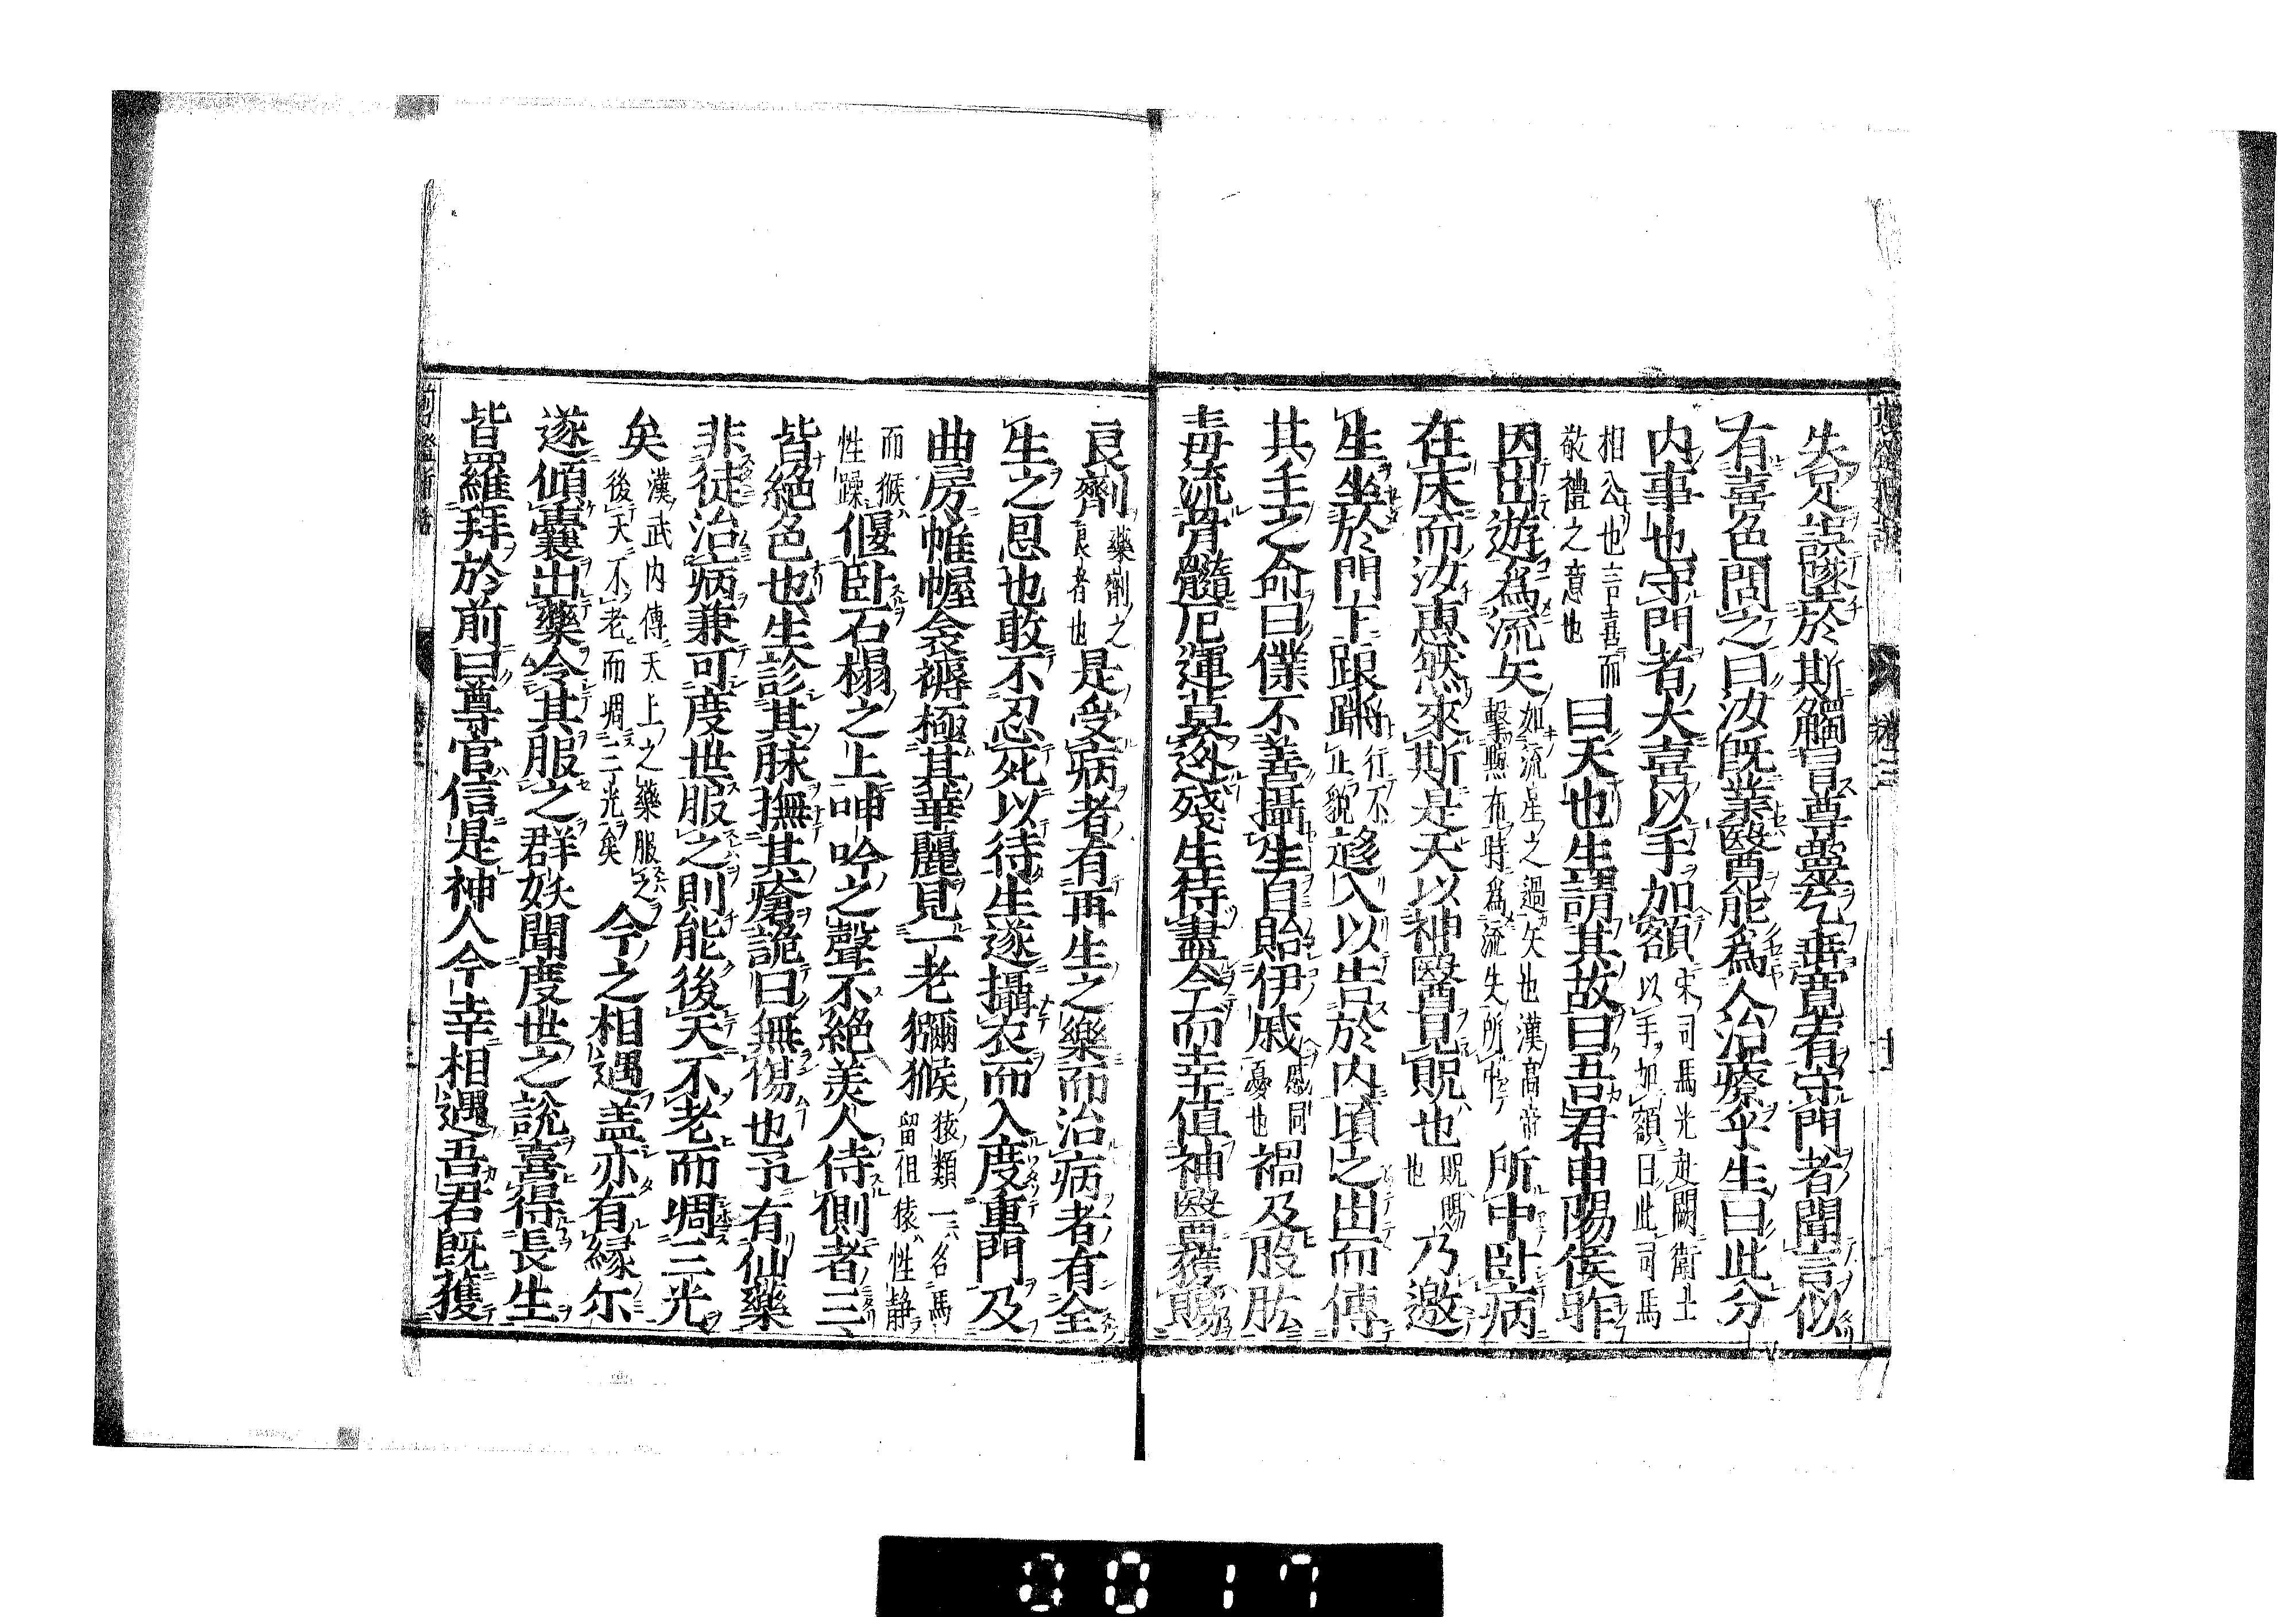 失足誤墜於斯觸冒尊靈乞垂寛宥守門者聞言似
有喜色問之曰汝既業醫能爲人治療乎生曰此分
内事也守門者大喜以手加額宋司馬光赴闕衛士以手加額曰此司馬
相公也言喜而敬禮之意也曰天也生請其故曰吾君申陽侯昨
因出遊爲流矢如流星之過矢也漢高帝擊黥布時爲流矢所中所中卧病
在床而汝惠然來斯是天以神醫見貺也貺賜也乃邀
生坐於門下踉蹡行不止貌趨入以告於内頃之出而傳
其主之命曰僕不善攝生自貽伊戚戚同憂也禍及股肱
毒流骨髓厄運莫逃殘生待盡今而幸值神醫獲賜
良劑藥劑之良者也是受病者有再生之樂而治病者有全
生之恩也敢不忍死以待生遂攝衣而入度重門及
曲房帷幄衾褥極其華麗見一老獼猴猿類一名馬留但猿性静
而猴性躁偃卧石榻之上呻吟之聲不絶美人侍側者三
皆絶色也生診其脉撫其瘡詭曰無傷也予有仙藥
非徒治病兼可度世服之則能後天不老而凋三光
矣漢武内傳天上之藥服之後天不老而凋三光矣今之相遇盖亦有縁尓
遂傾囊出藥令其服之群妖聞度世之説喜得長生
皆羅拜於前曰尊官信是神人今幸相遇吾君既獲